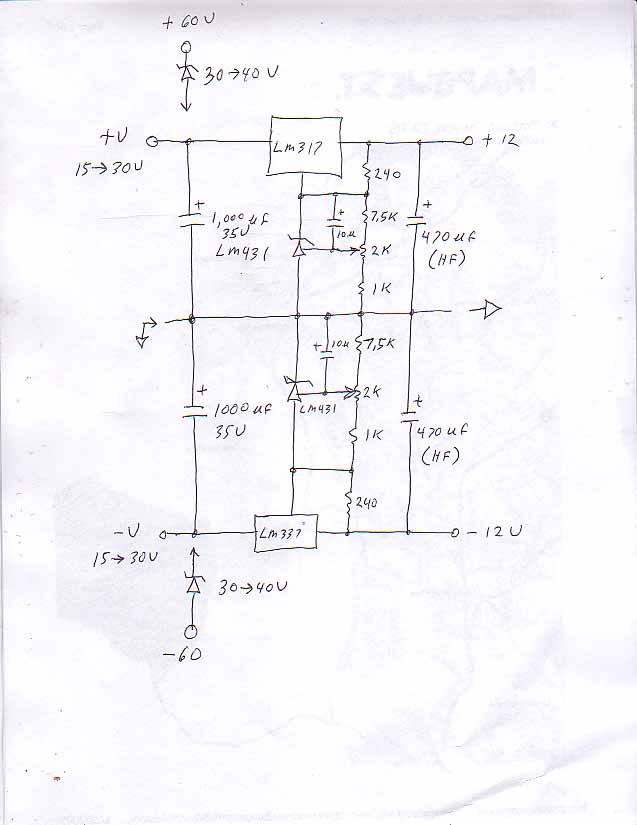 +60V
30→40V
+V
15→30V
Lm317
+12
240
+
1,000 uf
35V
Lm431
+
10u
7.5K
2K
1K
+
470 uf
(HF)
+
10u
7.5K
Lm431
2K
1K
+
1000 uf
35V
+
470 uf
(HF)
240
-V
15→30V
Lm337
-12V
30→40V
-60